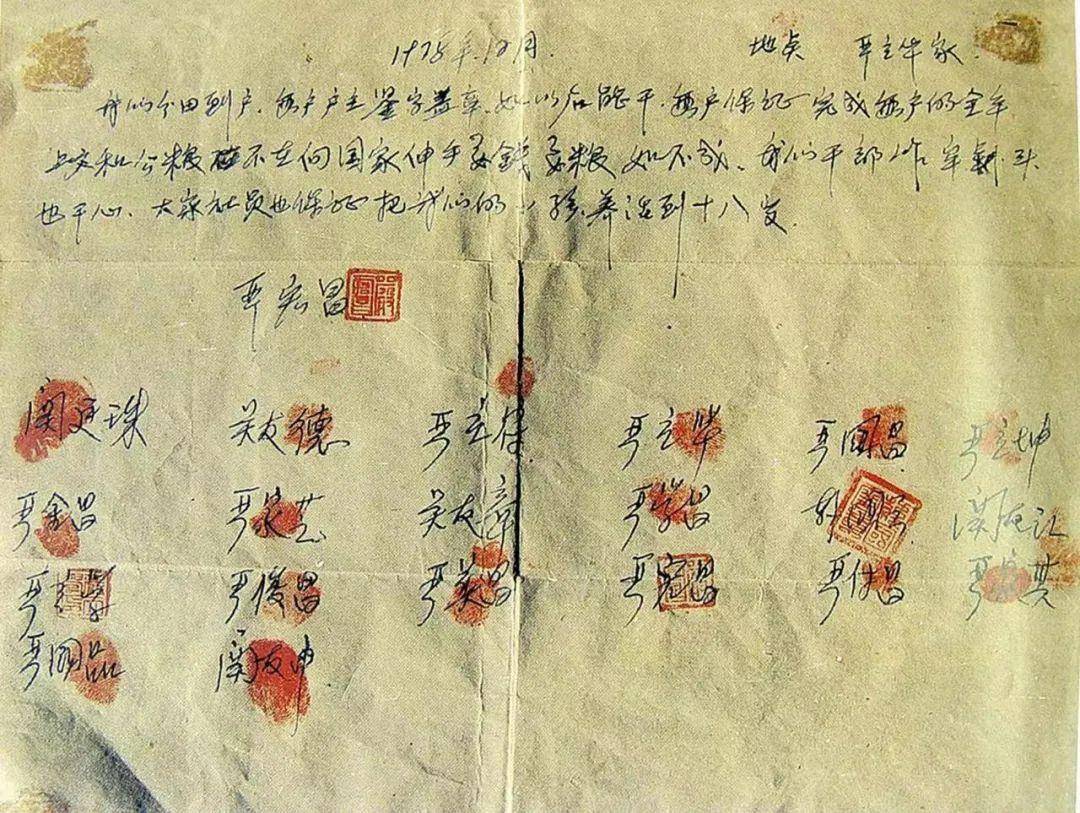 1978年12月. 地点 严立华家.
我们分田到户. 每户户主签字盖章. 如以后能干. 每户保证完成每户的全年
上交和公粮 不在向国家伸手要钱要粮 如不成. 我们干部作牢刹头
也干心. 大家社员也保证把我们的小孩养活到十八岁.
严宏昌
关廷珠 关友德 严立符 严立华 严国昌 严立坤
严金昌 严家芝 关友章 严学昌 韩国云 关友江
严立学 严俊昌 严美昌 严宏昌 严付昌 严家其
严国品 关友申